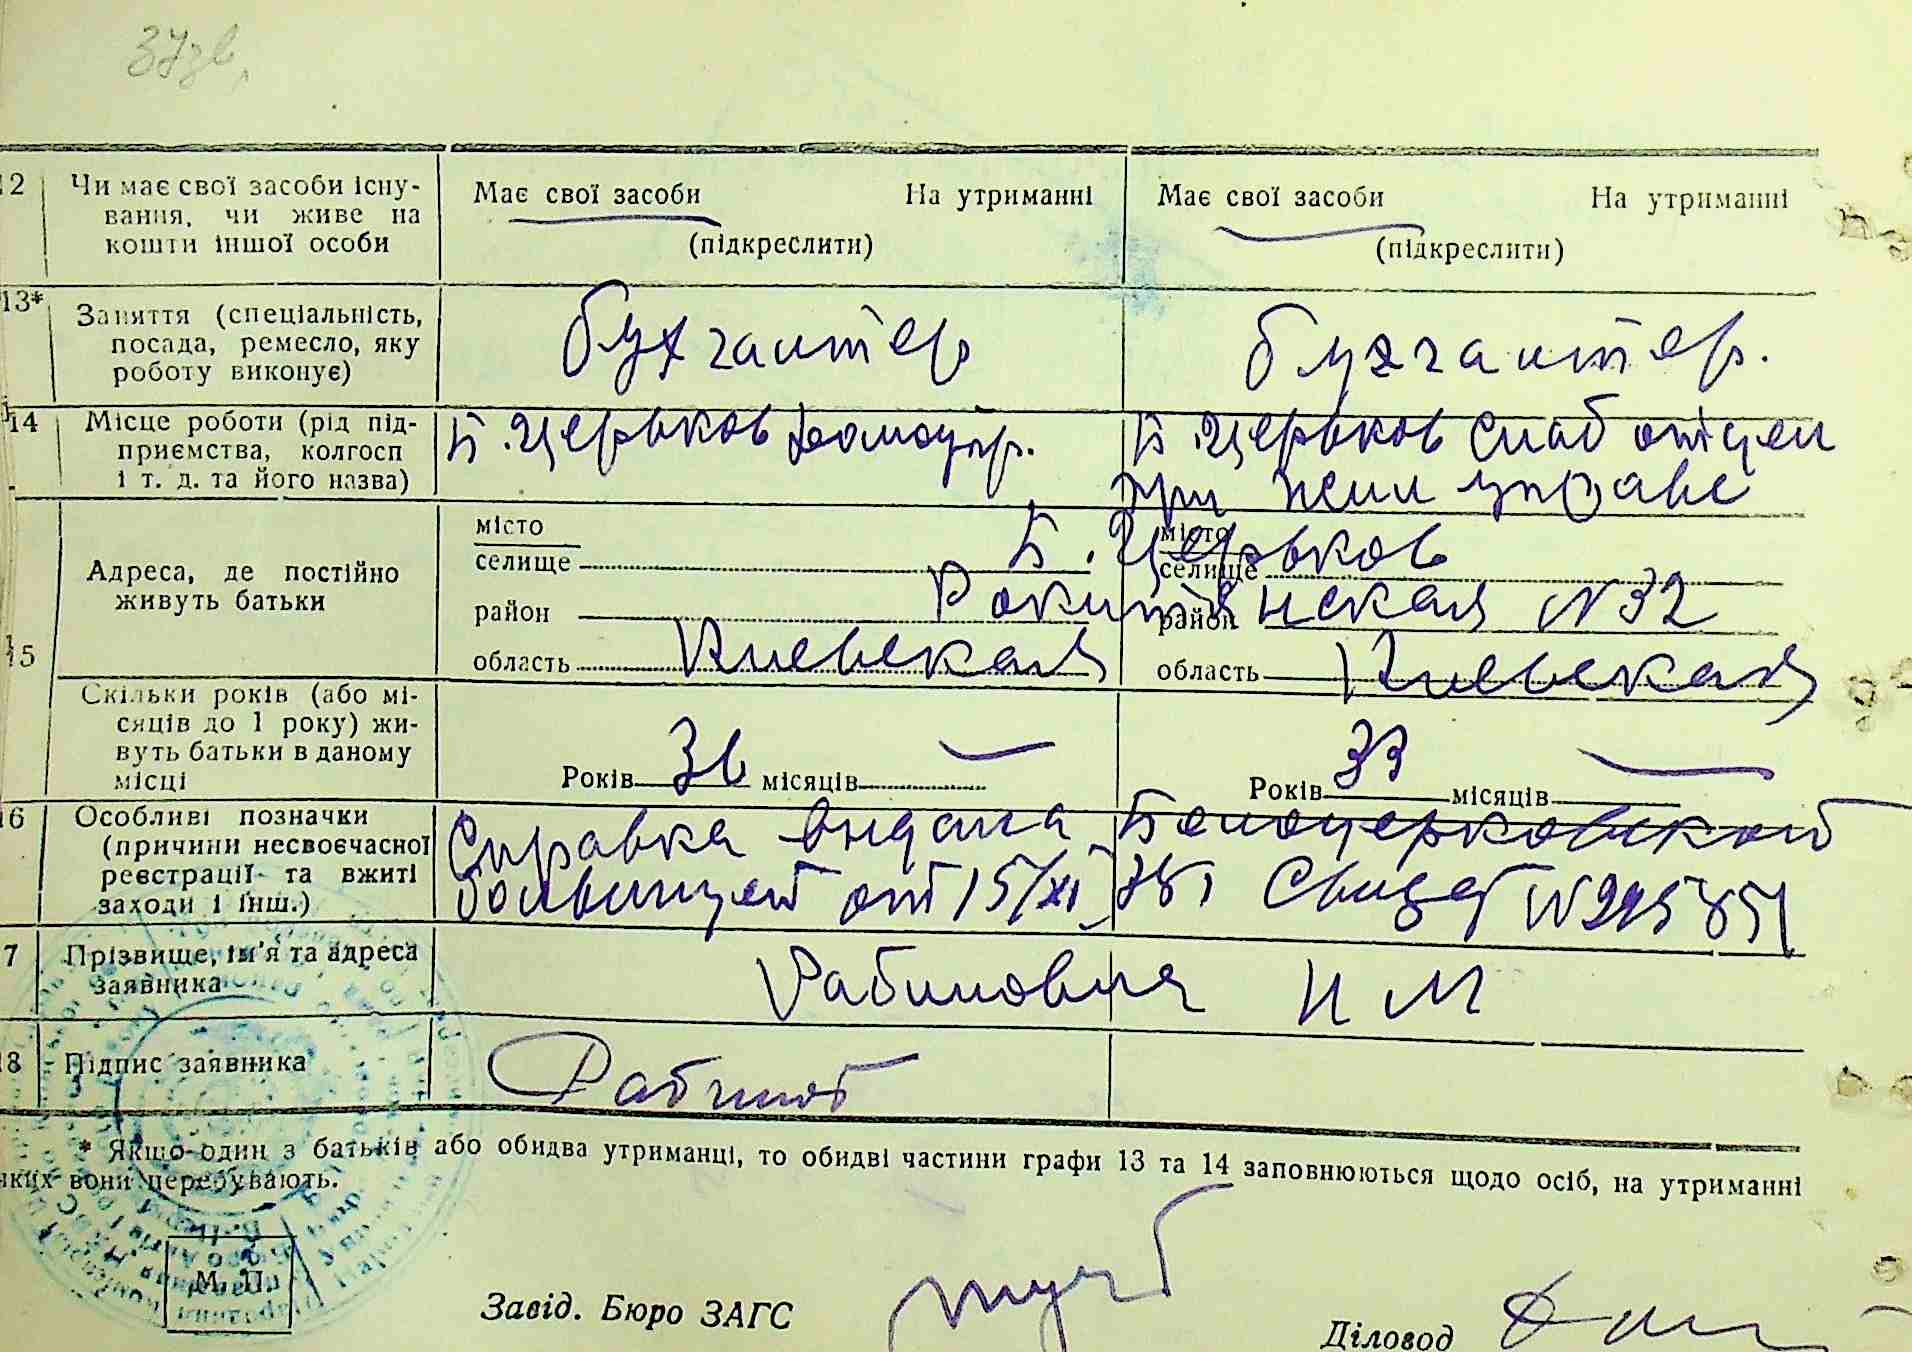 12 Чи має свої засоби існу-
вання, чи живе на
кошти іншої особи
Має свої засоби На утриманні
(підкреслити)
Має свої засоби На утриманні
(підкреслити)
13* Заняття (спеціальність,
посада, ремесло, яку
роботу виконує)
бухгалтер
бухгалтер.
14 Місце роботи (рід під-
приємства, колгосп
і т. д. та його назва)
Б. Церьков Домоупр.
Б. Церьков Снаб отдел
при жил управе
15 Адреса, де постійно
живуть батьки
місто
селище
район
область Киевская
місто
селище
район
область Киевская
Б. Церьков
Рокитянская N 32
Скільки років (або мі-
сяців до 1 року) жи-
вуть батьки в даному
місці
Років місяців
Років 33 місяців
16 Особливі позначки
(причини несвоєчасної
реєстрації та вжиті
заходи і інш.)
Справка выдана Белоцерковской
больницей от 15/XI
17 Прізвище, ім'я та адреса
заявника
Рабинович И М
18 Підпис заявника
Рабинов
* Якщо один з батьків або обидва утриманці, то обидві частини графи 13 та 14 заповнюються щодо осіб, на утриманні
яких вони перебувають.
М. П.
Завід. Бюро ЗАГС
Діловод